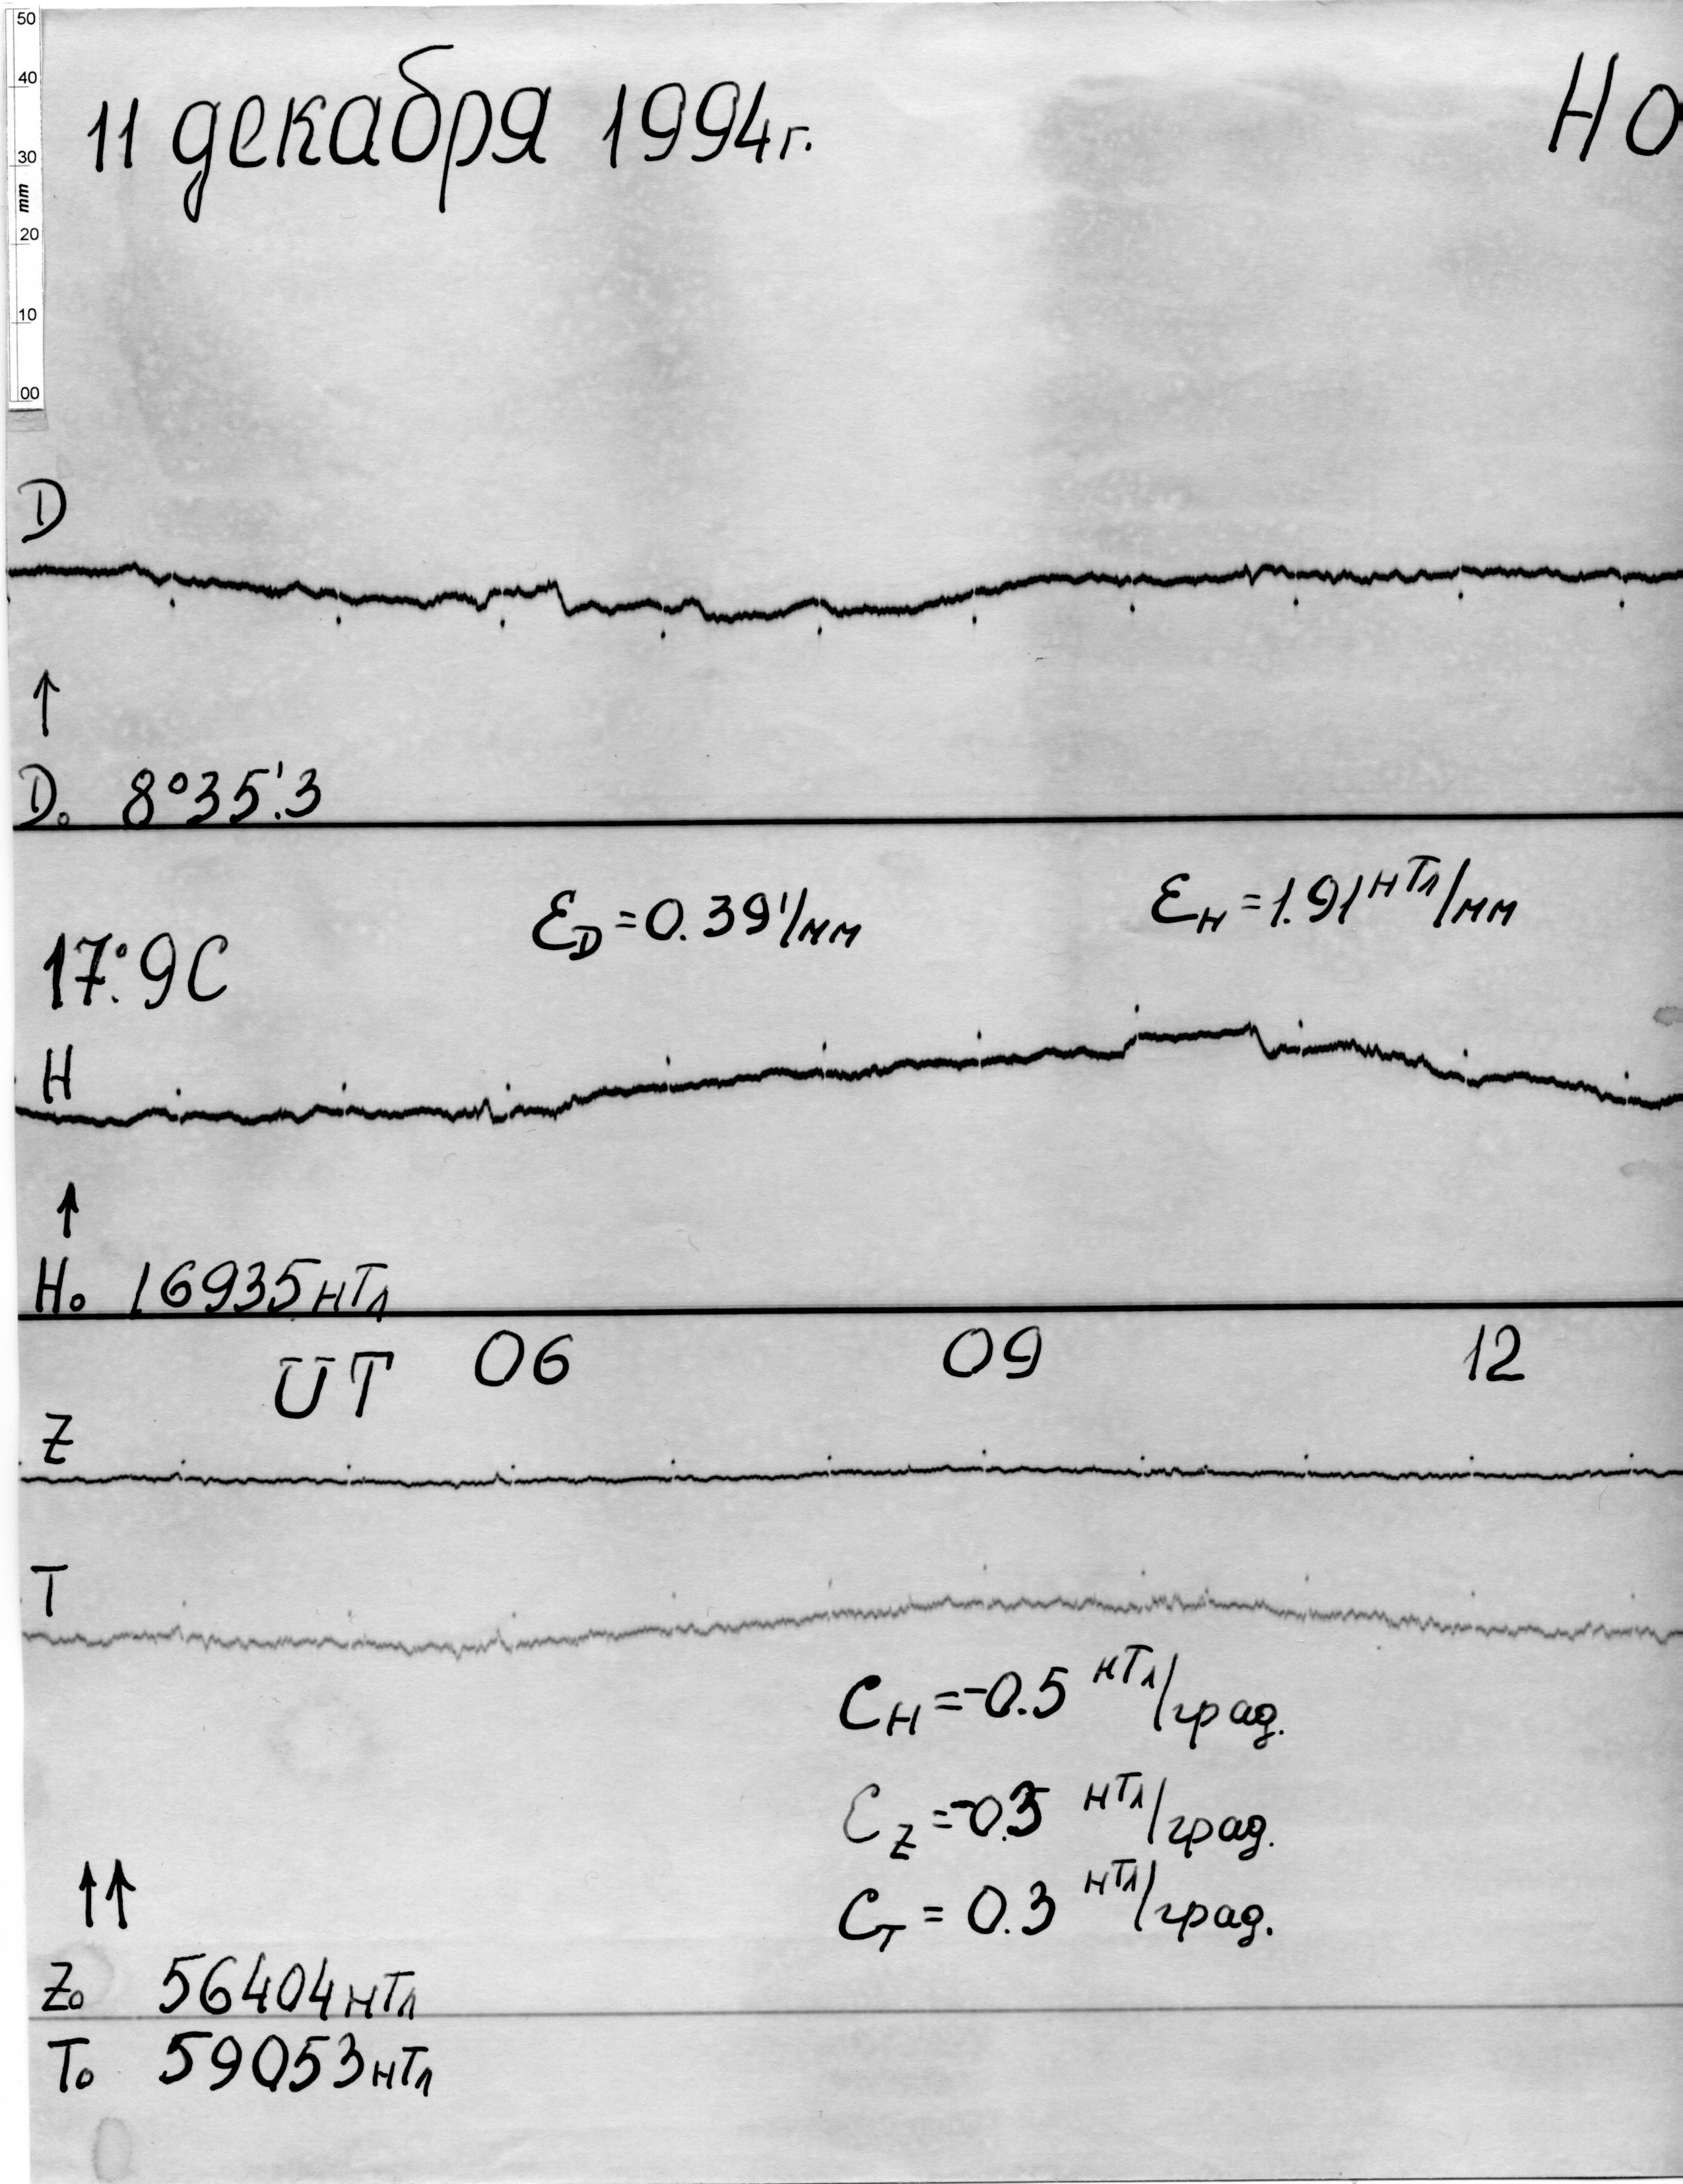 50
40
30
mm
20
10
00
11 декабря 1994г.
НО
D
↑
D₀ 8°35.'3
ℰD = 0.39'/мм
ℰH = 1.91 нТл/мм
17.°9С
H
↑
H₀ 16935 нТл
UT 06 09 12
Z
T
CH = -0.5 нТл/град.
CZ = -0.3 нТл/град.
CT = 0.3 нТл/град.
↑↑
Z₀ 56404 нТл
T₀ 59053 нТл